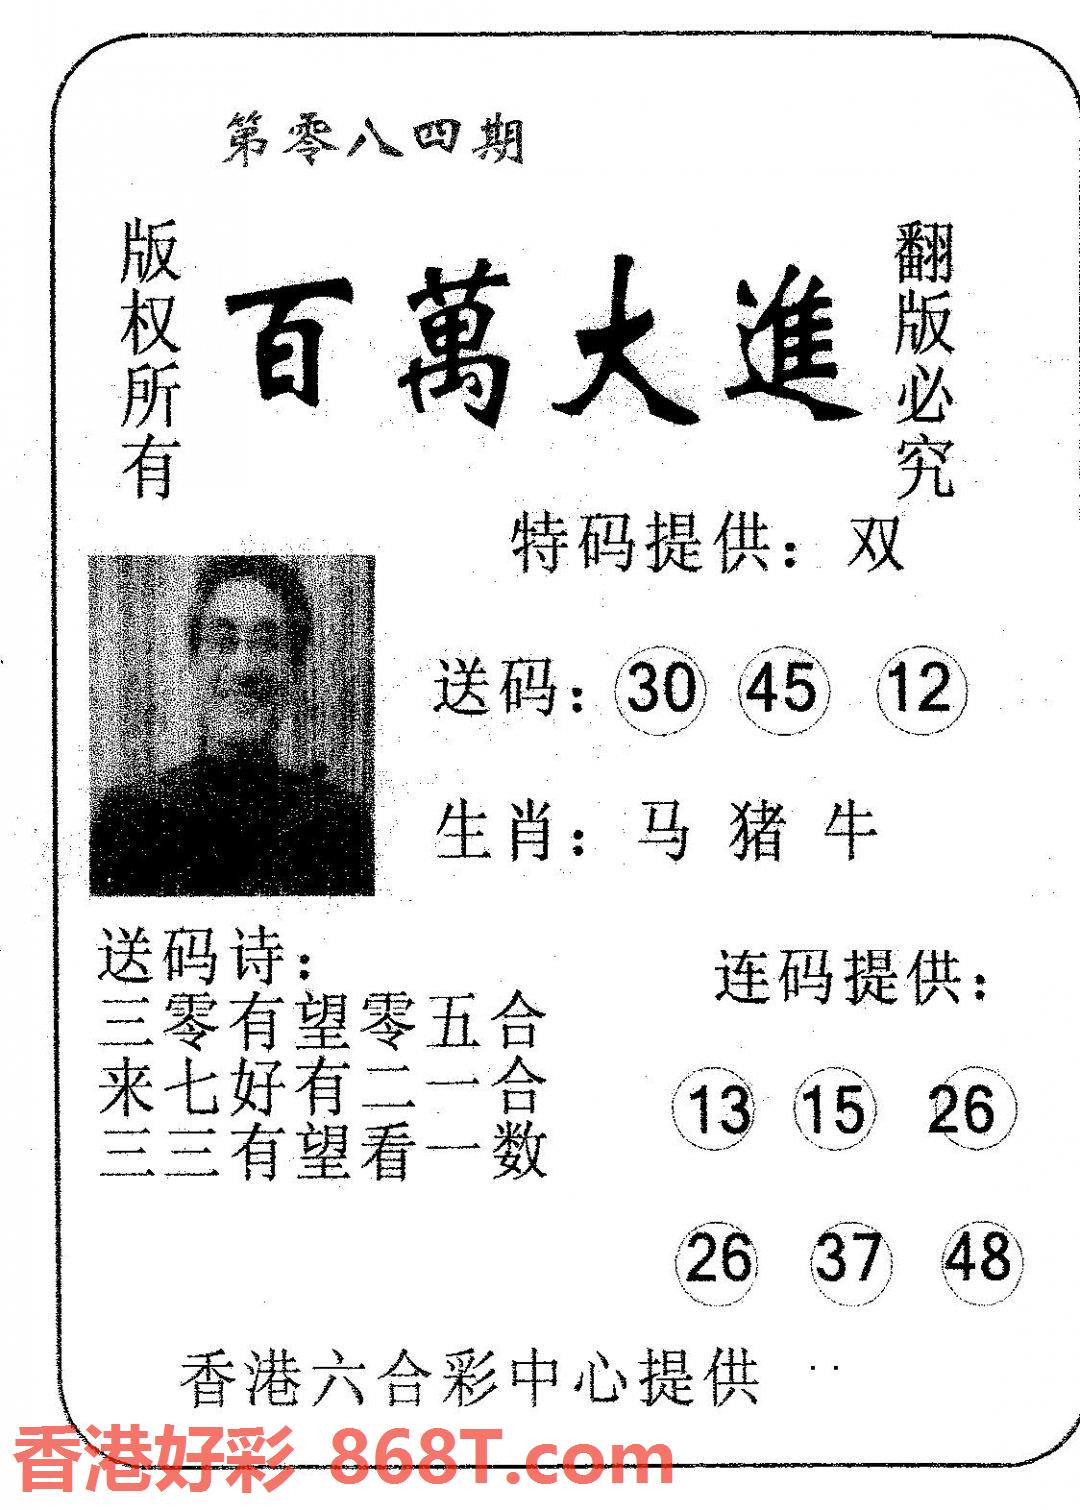 第零八四期
版权所有
百萬大進
翻版必究
特码提供：双
送码：30 45 12
生肖：马 猪 牛
送码诗：
三零有望零五合
来七好有二一合
三三有望看一数
连码提供：
13 15 26
26 37 48
香港六合彩中心提供
香港好彩 868T.com